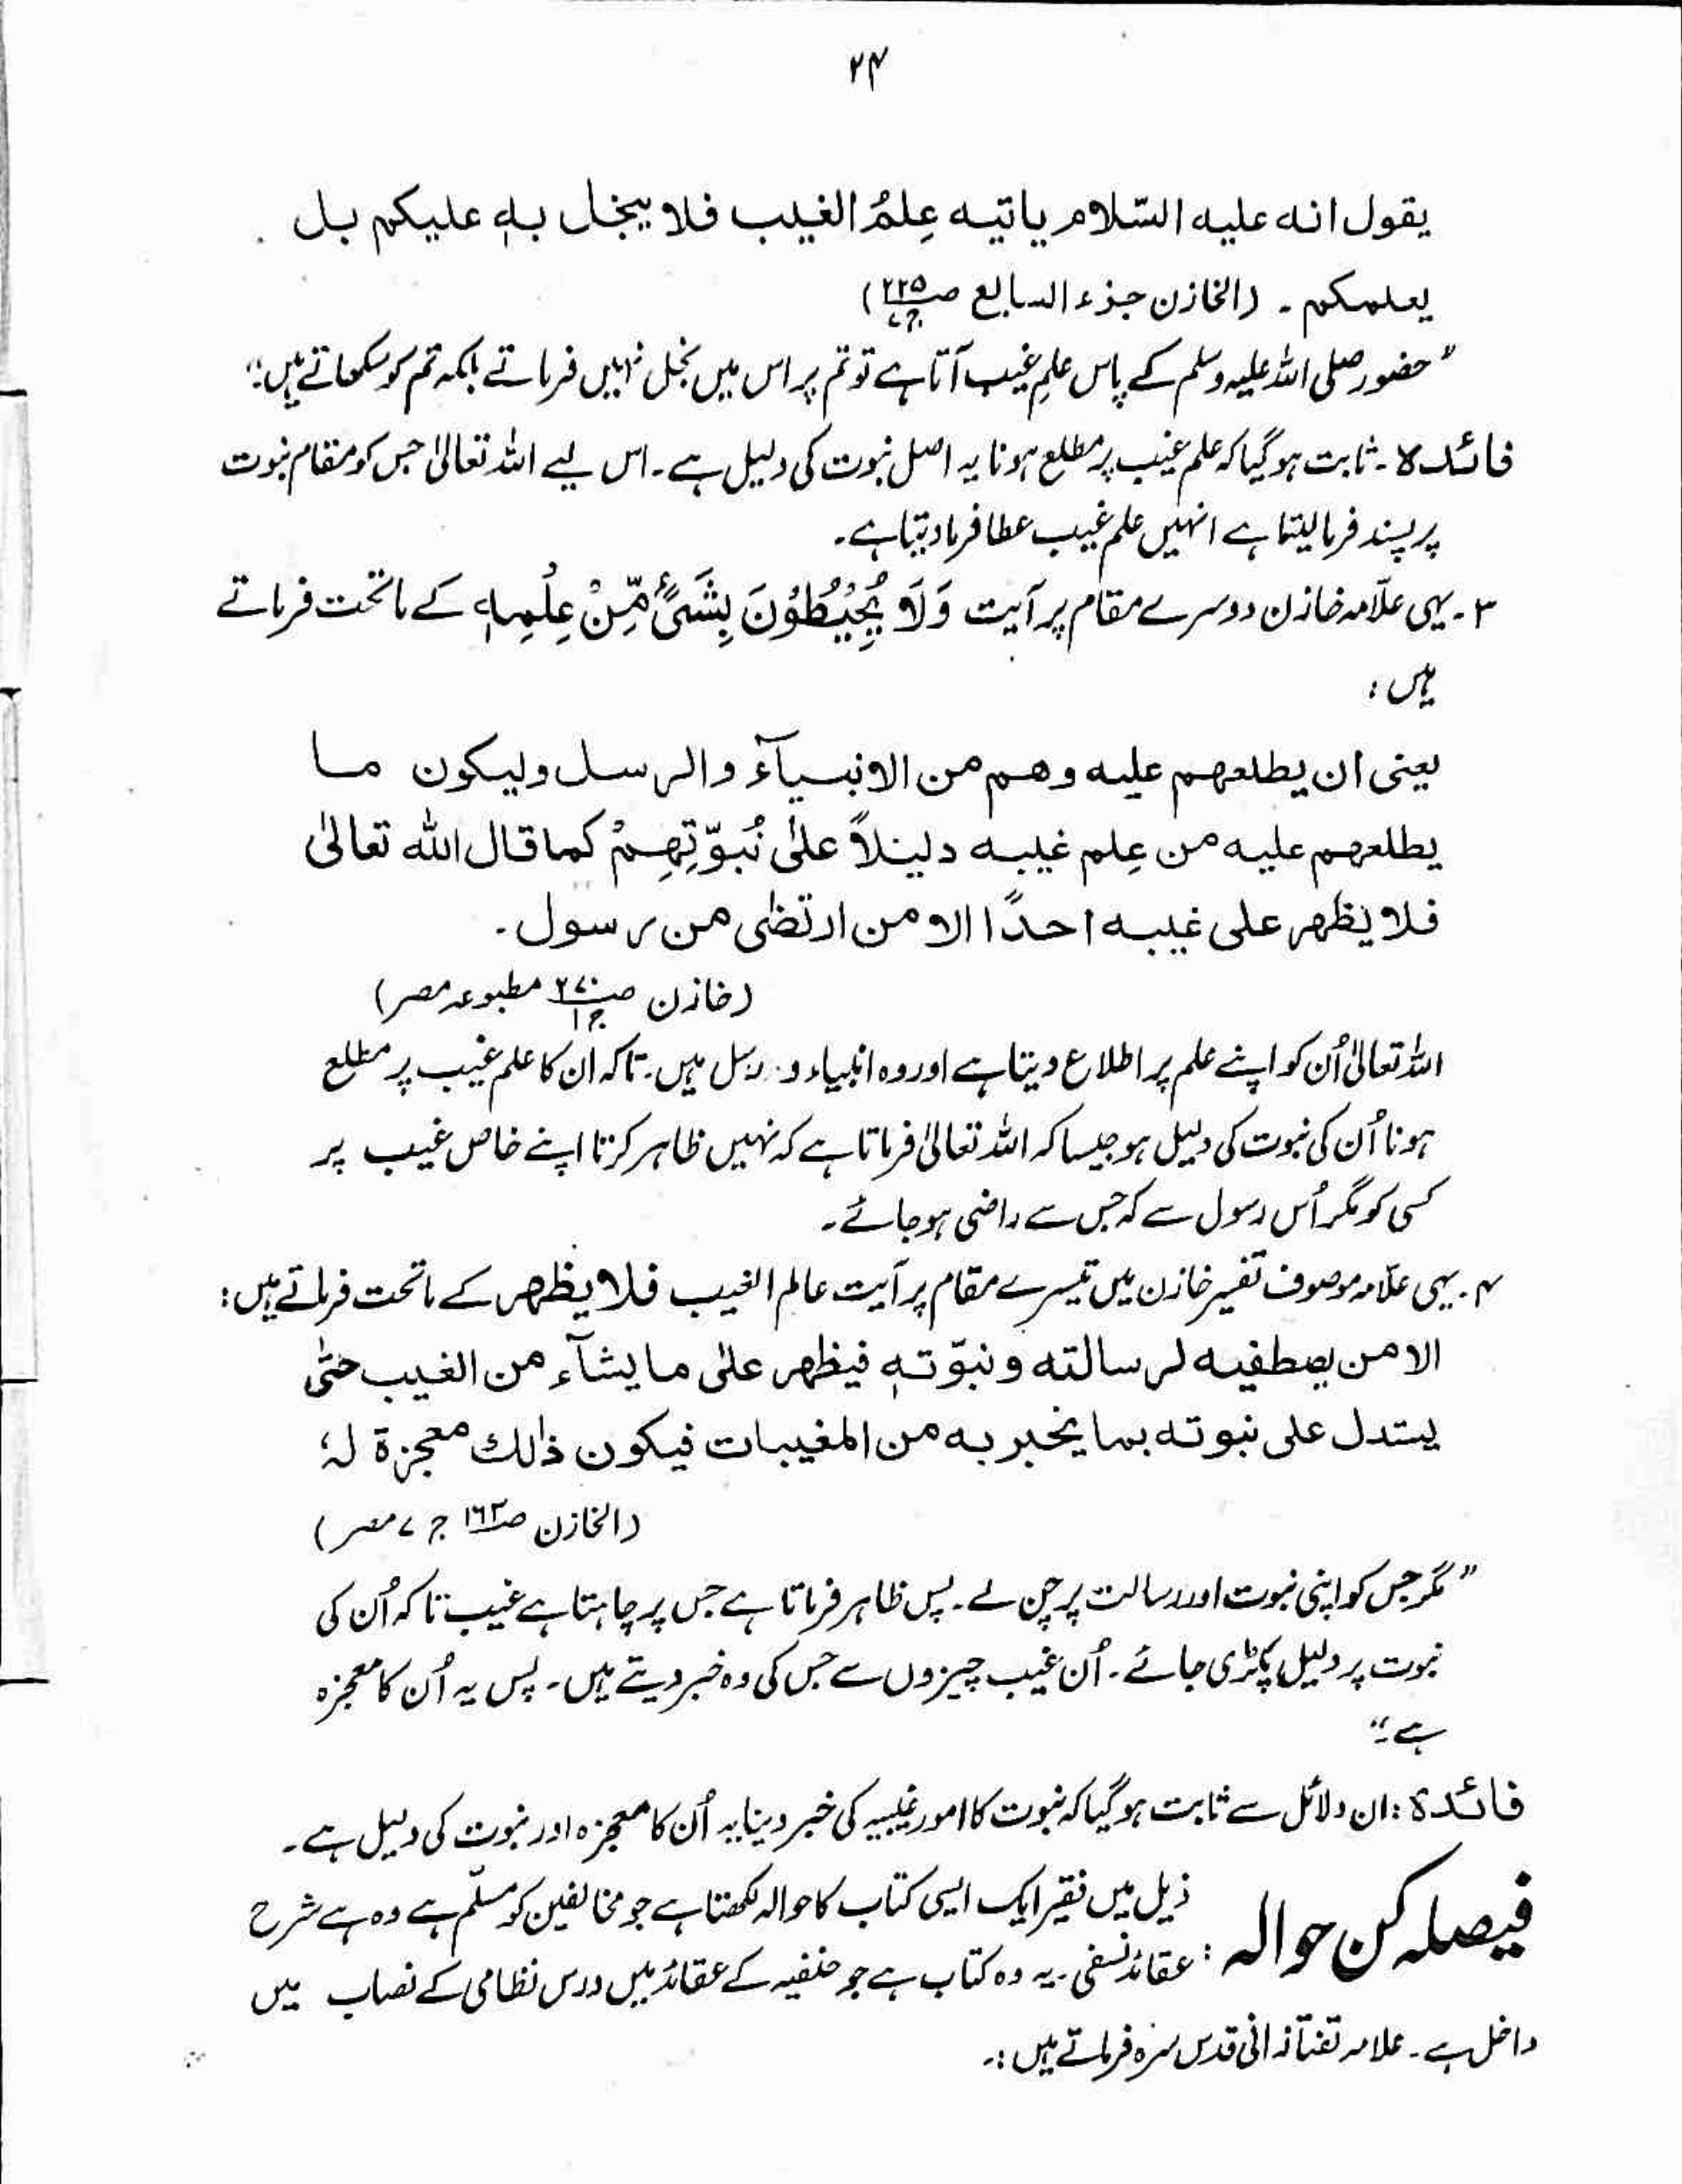 ۲۴
یقول انه علیه السّلام یاتیه عِلمُ الغیب فلا یبخل بہٖ علیکم بل
یعلمکم ۔ (الخازن جزء السابع صـ۲۲۵ ج۷)
”حضور صلی اللہ علیہ وسلم کے پاس علمِ غیب آتا ہے تو تم پر اس میں بخل نہیں فرماتے بلکہ تم کو سکھاتے ہیں۔“
فائدہ ۔ ثابت ہو گیا کہ علم غیب پر مطلع ہونا یہ اصل نبوت کی دلیل ہے۔ اس لیے اللہ تعالیٰ جس کو مقام نبوت
پر پسند فرما لیتا ہے انہیں علم غیب عطا فرما دیتا ہے۔
۳۔ یہی علّامہ خازن دوسرے مقام پر آیت وَلَا یُحِیْطُوْنَ بِشَیْءٍ مِّنْ عِلْمِہٖ کے ماتحت فرماتے
ہیں :
یعنی ان یطلعهم علیه وهم من الانبیآء والرسل ولیکون ما
یطلعهم علیه من عِلم غیبه دلیلاً علیٰ نُبوّتِهِمْ کما قال الله تعالیٰ
فلا یظهر علی غیبه احدًا الا من ارتضٰی من رسول ۔
(خازن صـ۲۷۰ ج۱ مطبوعہ مصر)
اللہ تعالیٰ اُن کو اپنے علم پر اطلاع دیتا ہے اور وہ انبیاء و رسل ہیں۔ تاکہ ان کا علم غیب پر مطلع
ہونا اُن کی نبوت کی دلیل ہو جیسا کہ اللہ تعالیٰ فرماتا ہے کہ نہیں ظاہر کرتا اپنے خاص غیب پر
کسی کو مگر اُس رسول سے کہ جس سے راضی ہو جائے۔
۴۔ یہی علّامہ موصوف تفسیر خازن میں تیسرے مقام پر آیت عالم الغیب فلا یظهر کے ماتحت فرماتے ہیں :
الا من یصطفیه لرسالته و نبوّتہٖ فیظهر علیٰ ما یشآء من الغیب حتّٰی
یستدل علی نبوته بما یخبر به من المغیبات فیکون ذٰلك معجزة لہٗ
(الخازن صـ۱۶۲ ج ۷ مصر)
”مگر جس کو اپنی نبوت اور رسالت پر چن لے۔ پس ظاہر فرماتا ہے جس پر چاہتا ہے غیب تاکہ اُن کی
نبوت پر دلیل پکڑی جائے۔ اُن غیب چیزوں سے جس کی وہ خبر دیتے ہیں۔ پس یہ اُن کا معجزہ
ہے۔“
فائدہ : ان دلائل سے ثابت ہو گیا کہ نبوت کا امور غیبیہ کی خبر دینا یہ اُن کا معجزہ اور نبوت کی دلیل ہے۔
فیصلہ کن حوالہ : ذیل میں فقیر ایک ایسی کتاب کا حوالہ لکھتا ہے جو مخالفین کو مسلّم ہے وہ ہے شرح
عقائد نسفی۔ یہ وہ کتاب ہے جو حنفیہ کے عقائد میں درس نظامی کے نصاب میں
داخل ہے۔ علامہ تفتآزانی قدس سرہ فرماتے ہیں :۔